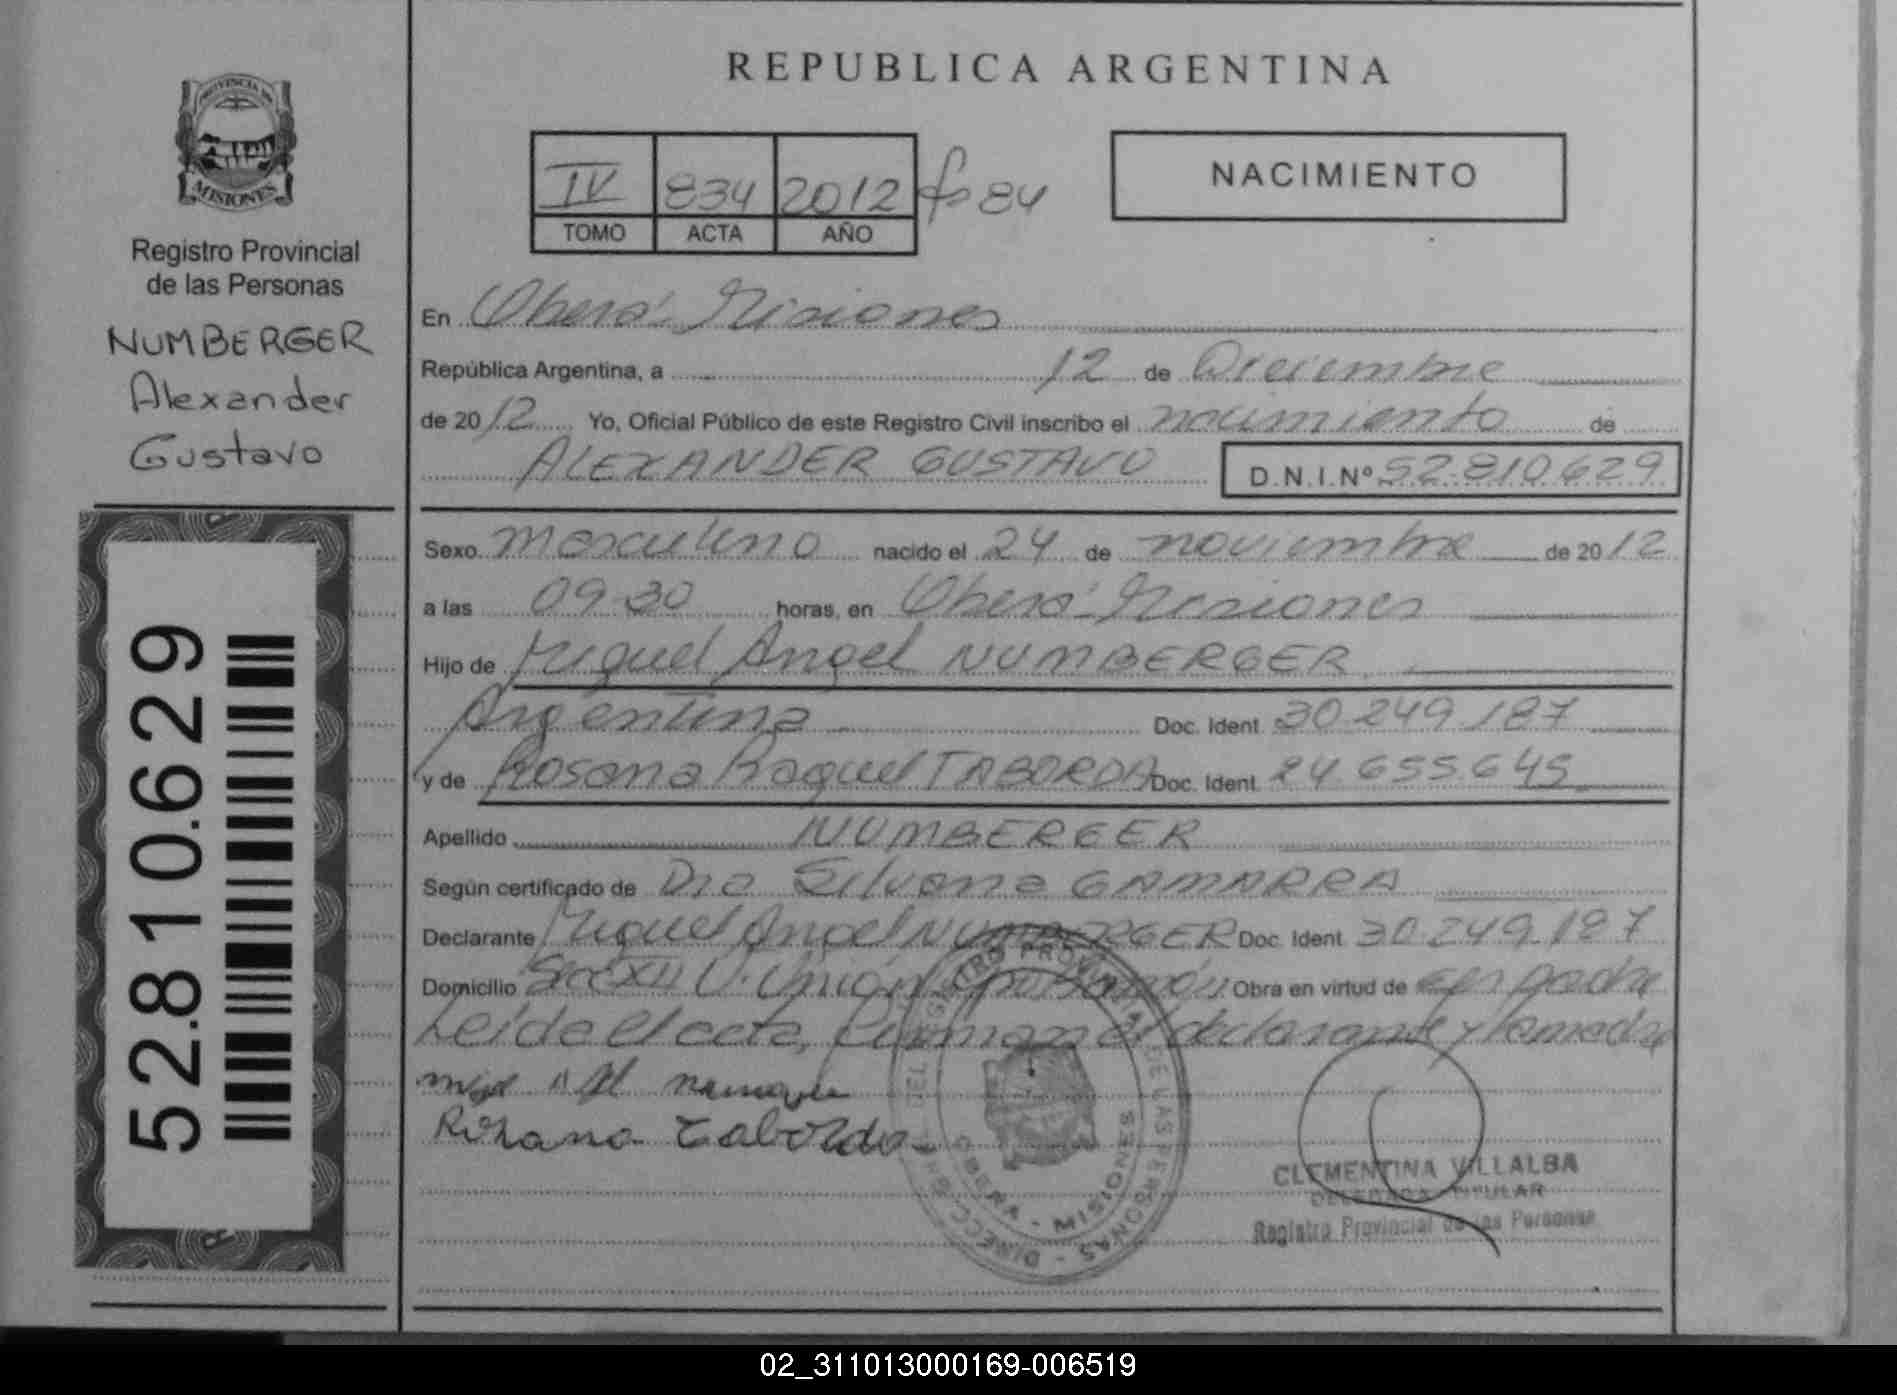 PROVINCIA DE
MISIONES
Registro Provincial
de las Personas
NUMBERGER
Alexander
Gustavo
52.810.629
REPUBLICA ARGENTINA
IV 834 2012 fº 84
TOMO ACTA AÑO
NACIMIENTO
En Oberá - Misiones
República Argentina, a 12 de Diciembre
de 2012 Yo, Oficial Público de este Registro Civil inscribo el nacimiento de
ALEXANDER GUSTAVO D.N.I.Nº 52.810.629
Sexo masculino nacido el 24 de noviembre de 2012
a las 09.30 horas, en Oberá - Misiones
Hijo de Miguel Angel NUMBERGER
Argentina Doc. Ident. 30.249.187
y de Rosana Raquel TABORDA Doc. Ident. 24.655.645
Apellido NUMBERGER
Según certificado de Dra Silvana GAMARRA
Declarante Miguel Angel NUMBERGER Doc. Ident. 30.249.187
Domicilio Secc XII V. Unión Obra en virtud de ser padre
Leída el acta, firman el declarante y la madre
Rosana Taborda
REGISTRO PROVINCIAL DE LAS PERSONAS - DIRECC. GRAL. DEL
OBERA - MISIONES
CLEMENTINA VILLALBA
DELEGADA TITULAR
Registro Provincial de las Personas
02_311013000169-006519